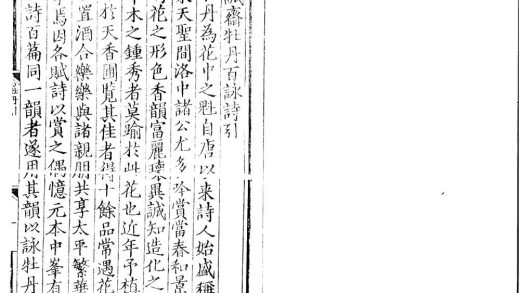 齋牡丹百詠詩引
牡丹為花中之魁自唐以來詩人始盛稱
宋天聖間洛中諸公尤多吟賞當春和景
花之形色香韻富麗瓌異誠知造化之
木之鍾秀者莫踰於此花也近年予植
於天香圃覽其佳者得十餘品常遇花
置酒合樂樂與諸親朋共享太平繁華
焉因各賦詩以賞之偶憶元本中峯有
詩百篇同一韻者遂用其韻以詠牡丹